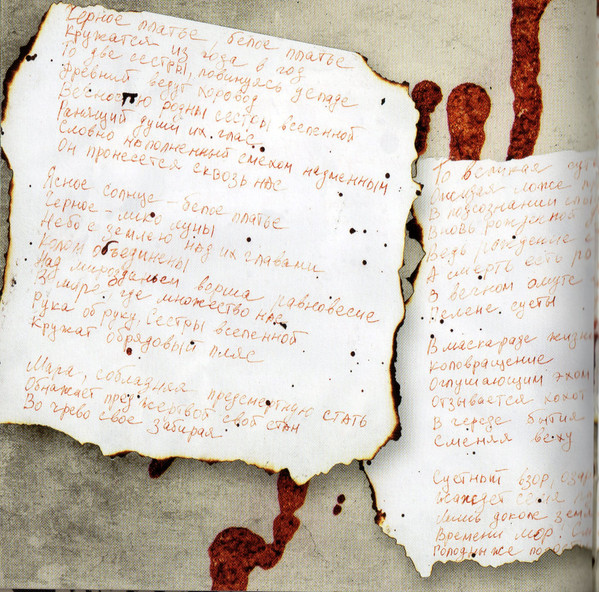 Черное платье, белое платье
Кружатся из года в год
То две сестры, повинуясь де
Древний ведут хоровод
Вечностью родны сестры вселенной
Ранящий души их глас
Словно наполненный смехом надменным
Он пронесется сквозь нас
Ясное солнце - белое платье
Черное - лико луны
Небо с землею над их главами
Колом объединены
Над мирозданьем верша равновесие
В мире, где множество нас
Рука об руку, Сестры вселенной
Кружат обрядовый пляс
Мара, соблазняя предсмертную стать
Обнажает пред жертвой свой стан
Во чрево свое забирая
То великая
Ожидая ложе
В подсознании
Вновь рожденной
Ведь рождение
А смерть есть
В вечном омуте
Пелене суеты
В маскараде жизни
Коловращение
Оглушающим эхом
Отзывается хохот
В череде бытия
Сменяя веху
Суетный взор,
Жаждет
Лишь доколе
Времени мор!
Голодны же